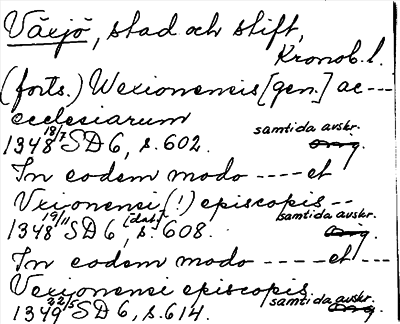 Växjö, stad och stift,
Kronob. l.
(forts.) Wexionensis [gen.] ac ---
ecclesiarum
1348 18/7 SD 6, s. 602. samtida avskr. orig.
In eodem modo ---- et
Vexionensi (!) episcopis --
1348 19/11 SD 6, [dat.] s. 608. samtida avskr. orig.
In eodem modo ---- et ---
Vexionensi episcopis
1349 22/5 SD 6, s. 614. samtida avskr. orig.